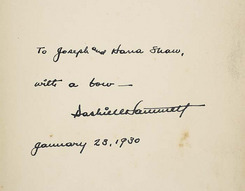 To Joseph and Hana Shaw,
with a bow —
Dashiell Hammett
January 23, 1930